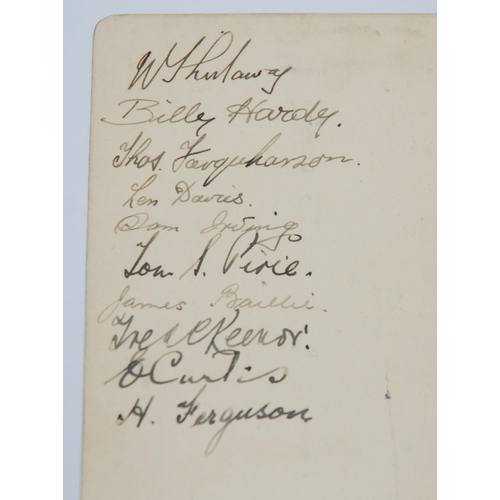 W Thirlaway
Billy Hardy.
Thos. Farquharson.
Len Davies.
Sam Irving
Tom S. Pirie.
James Baillie.
Fred C Keenor.
E Curtis
H. Ferguson